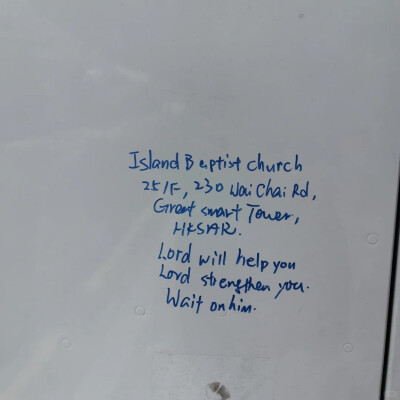 Island Baptist church
25/F, 230 Wai Chai Rd,
Great smart Tower,
HKSAR.
Lord will help you
Lord strengthen you.
Wait on him.